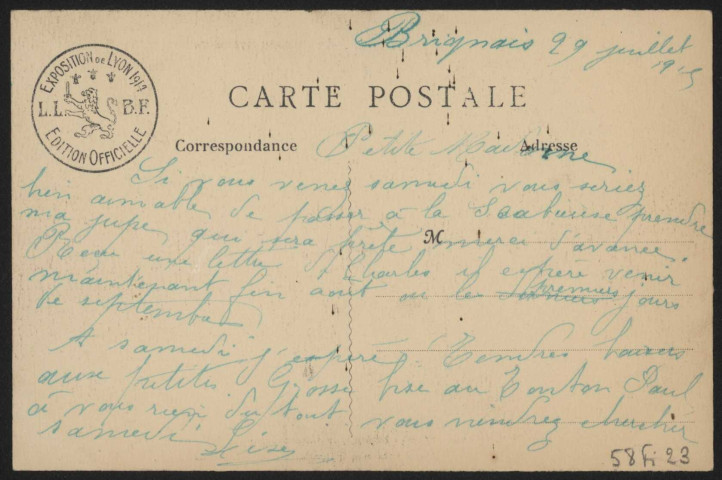 Brignais 29 juillet
1915
EXPOSITION DE LYON 1914
L.L. B.F.
EDITION OFFICIELLE
CARTE POSTALE
Correspondance
Adresse
M
Petite Madame
Si vous venez samedi vous seriez
bien aimable de passer à la prendre
ma jupe qui sera prête merci d'avance.
Recu une lettre d Charles il espère venir
maintenant fin août ou les premiers jours
de septembre
A samedi j'espère Tendres baisers
aux petites Grosse bise au Tonton Paul
à vous rien du tout vous viendrez chercher
samedi Lise
58 Fi 23